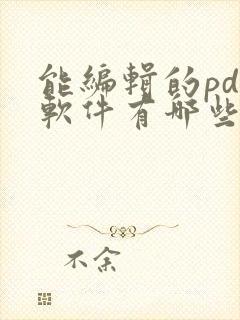 能編輯的pd
軟件有哪些
不余